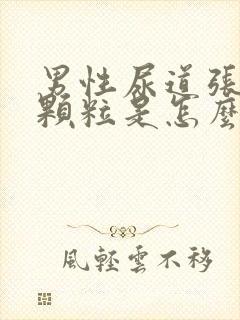 男性尿道張
顆粒是怎麼
風輕雲不移